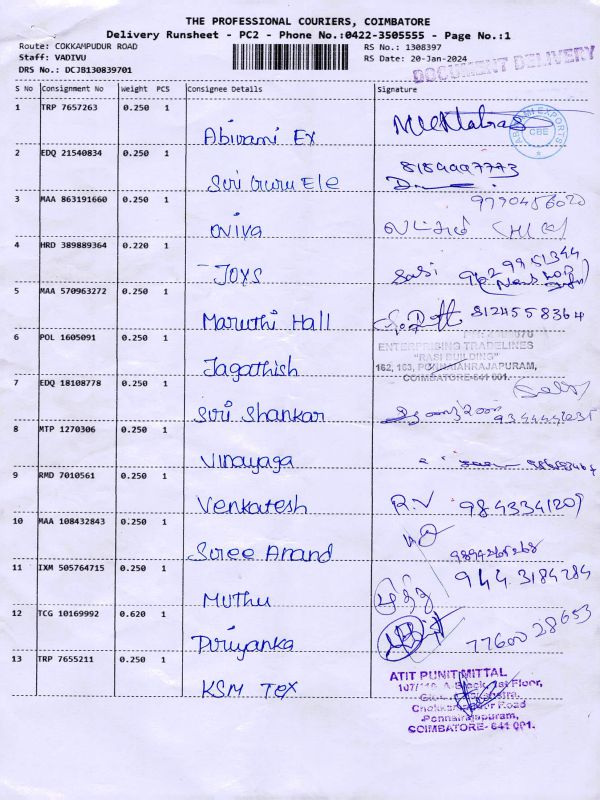 THE PROFESSIONAL COURIERS, COIMBATORE
Delivery Runsheet - PC2 - Phone No.:0422-3505555 - Page No.:1
Route: COKKAMPUDUR ROAD
RS No.: 1308397
Staff: VADIVU
RS Date: 20-Jan-2024
DRS No.: DCJB130839701
DOCUMENT DELIVERY
S No Consignment No Weight PCS Consignee Details Signature
1 TRP 7657263 0.250 1
Abivami Ex
CBE
2 EDQ 21540834 0.250 1
8189997773
Siri Guru Ele
3 MAA 863191660 0.250 1
9790456020
Oviya
4 HRD 389889364 0.220 1
JOYS Sasi
5 MAA 570963272 0.250 1
Maruthi Hall 8124558364
6 POL 1605091 0.250 1
ENTERPRISING TRADELINES
"RASI BUILDING"
162, 163, PONNAIAHRAJAPURAM,
COIMBATORE-641 001.
Jagathish
7 EDQ 18108778 0.250 1
Siri Shankar
8 MTP 1270306 0.250 1
Vinayaga
9 RMD 7010561 0.250 1
Venkatesh R.V 9843341209
10 MAA 108432843 0.250 1
Sree Anand
11 IXM 505764715 0.250 1
Muthu முத்து 944 3184284
12 TCG 10169992 0.620 1
Piriyanka 77600 28653
13 TRP 7655211 0.250 1
KSM Tex
ATIT PUNIT MITTAL
Ponnairajapuram,
COIMBATORE- 641 001.